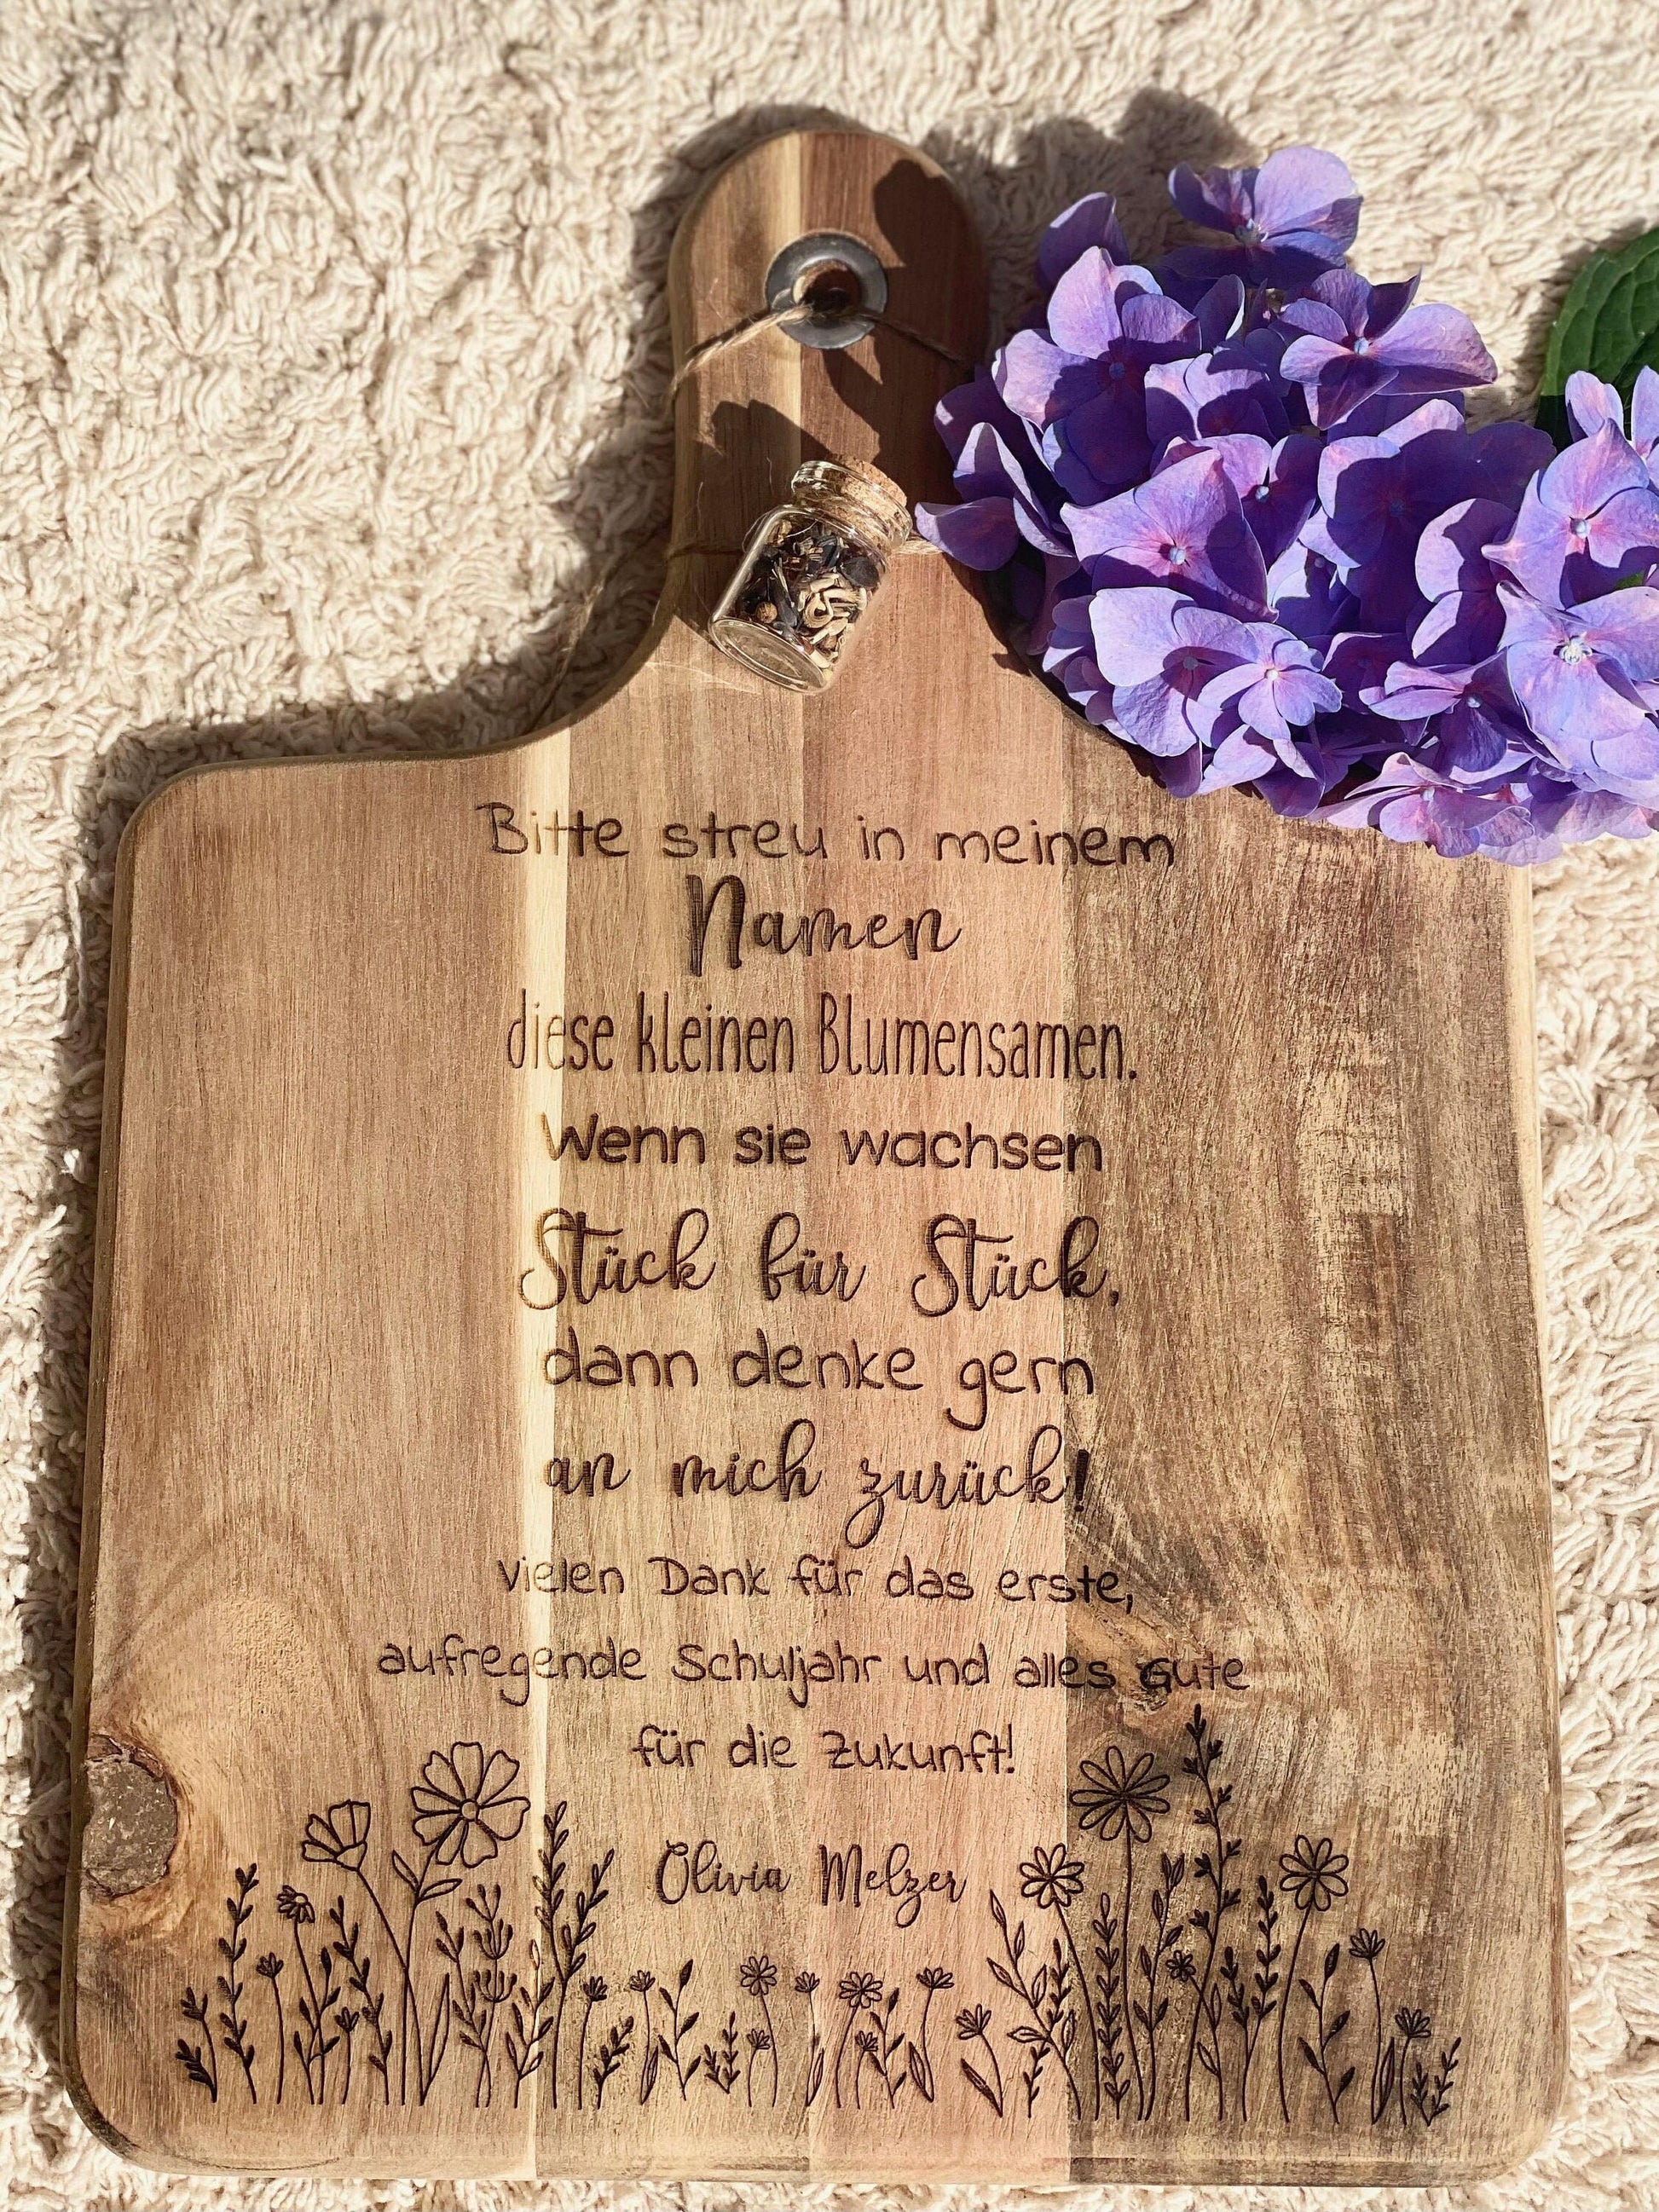 Bitte streu in meinem
Namen
diese kleinen Blumensamen.
Wenn sie wachsen
Stück für Stück,
dann denke gern
an mich zurück!
vielen Dank für das erste,
aufregende Schuljahr und alles Gute
für die Zukunft!
Olivia Melzer